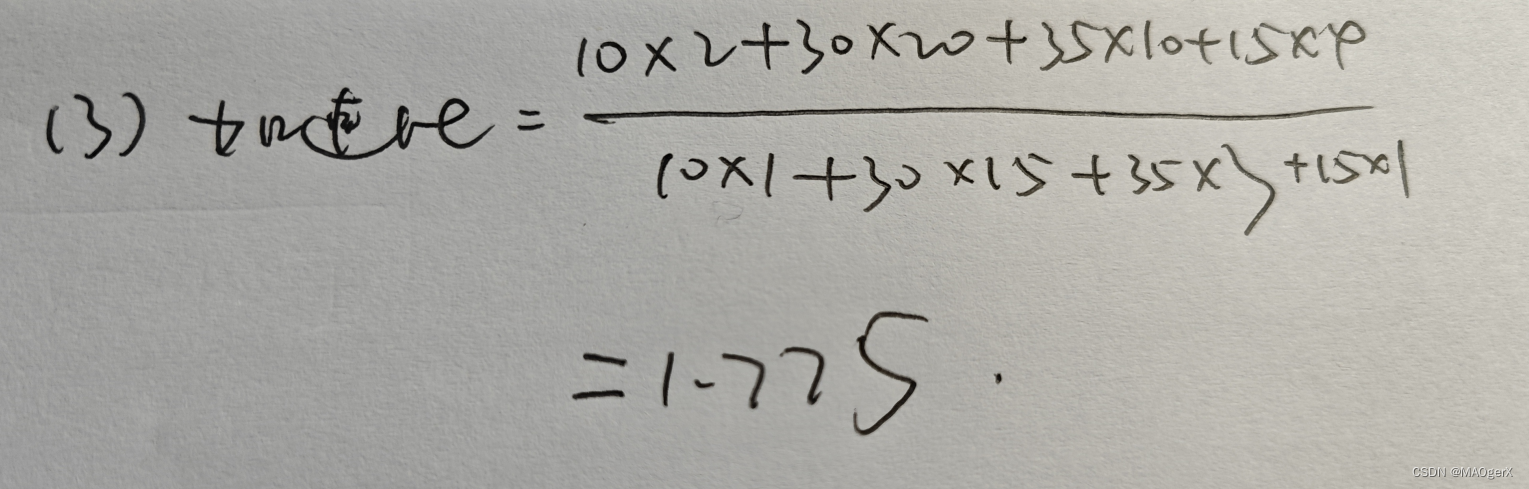 (3) = 10×2+30×20+35×10+15×4
10×1+30×15+35×3+15×1
=1.775.
CSDN @MAOgerX